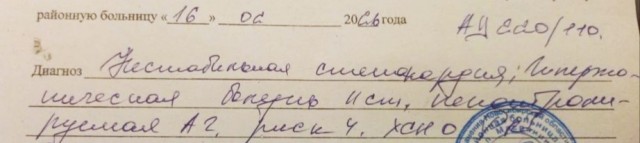 районную больницу «16» 02 2026 года
АД 220/110.
Диагноз Нестабильная стенокардия; Гиперто-
ническая болезнь II ст, неконтроли-
руемая АГ, риск 4. ХСН 0